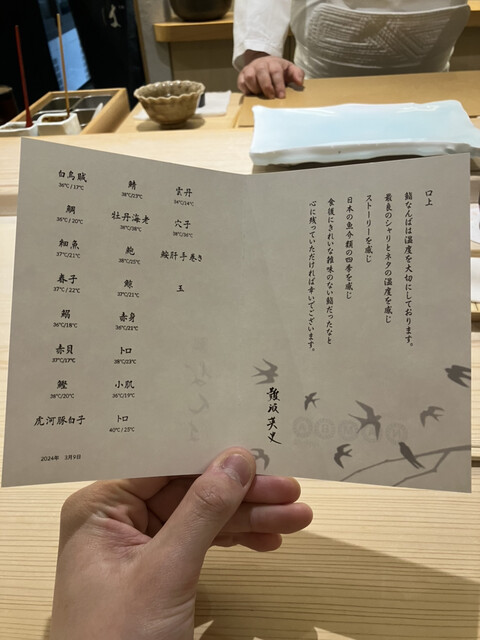 白烏賊
36℃/17℃
鯛
36℃/20℃
細魚
37℃/21℃
春子
37℃/22℃
鰯
36℃/18℃
赤貝
37℃/17℃
鰹
38℃/20℃
虎河豚白子
鯖
38℃/19℃
牡丹海老
36℃/38℃
鮑
38℃/25℃
鯨
37℃/21℃
赤身
36℃/21℃
トロ
38℃/23℃
小肌
36℃/19℃
トロ
40℃/25℃
雲丹
34℃/14℃
穴子
38℃/50℃
鮟肝手巻き
玉
2024年 3月9日
口上
鮨なんばは温度を大切にしております。
最良のシャリとネタの温度を感じ
ストーリーを感じ
日本の魚介類の四季を感じ
食後にきれいな雑味のない鮨だったなと
心に残っていただければ幸いでございます。
難波英史